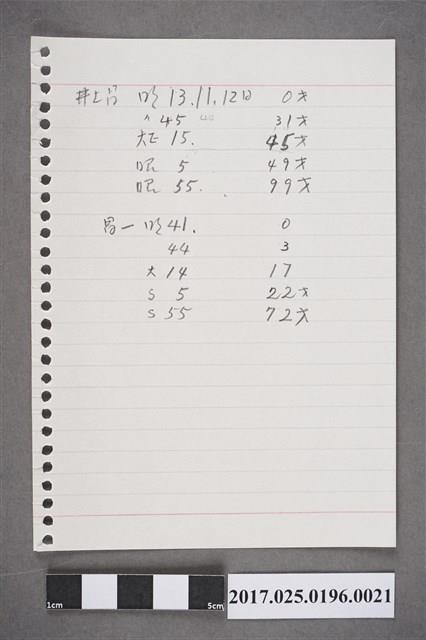 井上昌 明13.11.12日 0才
〃 45 31才
大正 15. 45才
昭 5 49才
昭 55. 99才
昌一 明41. 0
44 3
大 14 17
S 5 22才
S 55 72才
1cm 5cm
2017.025.0196.0021